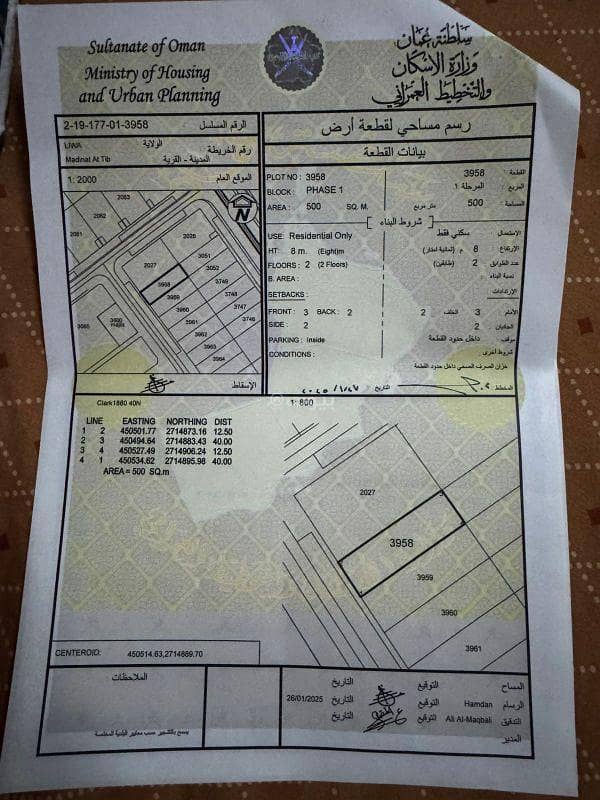 Sultanate of Oman
Ministry of Housing
and Urban Planning
سلطنة عمان
وزارة الإسكان
والتخطيط العمراني
2-19-177-01-3958 الرقم المسلسل
رسم مساحي لقطعة أرض
LIWA الولاية
Madinat At Tib المدينة - القرية
رقم الخريطة
بيانات القطعة
1: 2000 الموقع العام
PLOT NO : 3958
القطعة 3958
BLOCK : PHASE 1
المربع المرحلة 1
AREA : 500 SQ. M.
المساحة : 500 متر مربع
شروط البناء
USE: Residential Only
الاستعمال : سكني فقط
HT: 8 m. (Eight)m
الإرتفاع : 8 م (ثمانية أمتار)
FLOORS : 2 (2 Floors)
عدد الطوابق : 2 (طابقين)
B. AREA :
نسبة البناء
SETBACKS :
الإرتدادات
FRONT : 3 BACK : 2
الأمام 3 الخلف 2
SIDE : 2
الجانبان 2
PARKING : Inside
موقف داخل حدود القطعة
CONDITIONS :
شروط أخرى
خزان الصرف الصحي داخل حدود القطعة
المخطط
التاريخ
N
2063
2062
2061
2028
2027
3051
3052
3958
3959
3960
3961
3962
3963
3964
3749
3748
3747
3746
3665
3666
الإسقاط
Clark1880 40N
1: 600
LINE EASTING NORTHING DIST
1 2 450501.77 2714873.16 12.50
2 3 450494.64 2714883.43 40.00
3 4 450527.49 2714906.24 12.50
4 1 450534.62 2714895.96 40.00
AREA = 500 SQ.m
2027
3958
3959
3960
3961
CENTEROID: 450514.63,2714889.70
الملاحظات
يسمح بالتشجير حسب معايير البلدية المختصة
المساح التوقيع التاريخ
الرسام Hamdan التوقيع التاريخ 26/01/2025
التدقيق Ali Al-Maqbali التوقيع التاريخ
المدير